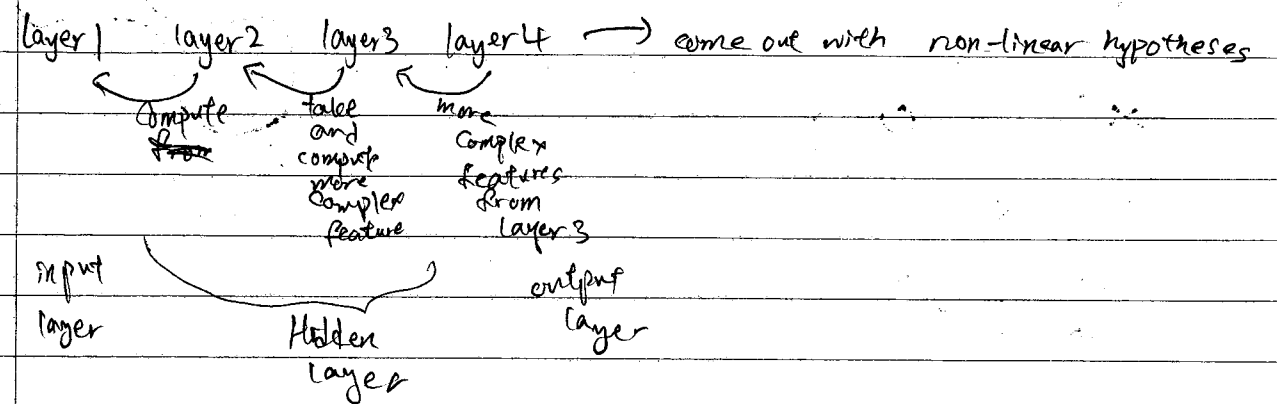 layer 1 layer 2 layer 3 layer 4 → come out with non-linear hypotheses
compute
from
take
and
compute
more
complex
feature
more
complex
features
from
layer 3
input
layer
Hidden
layer
output
layer